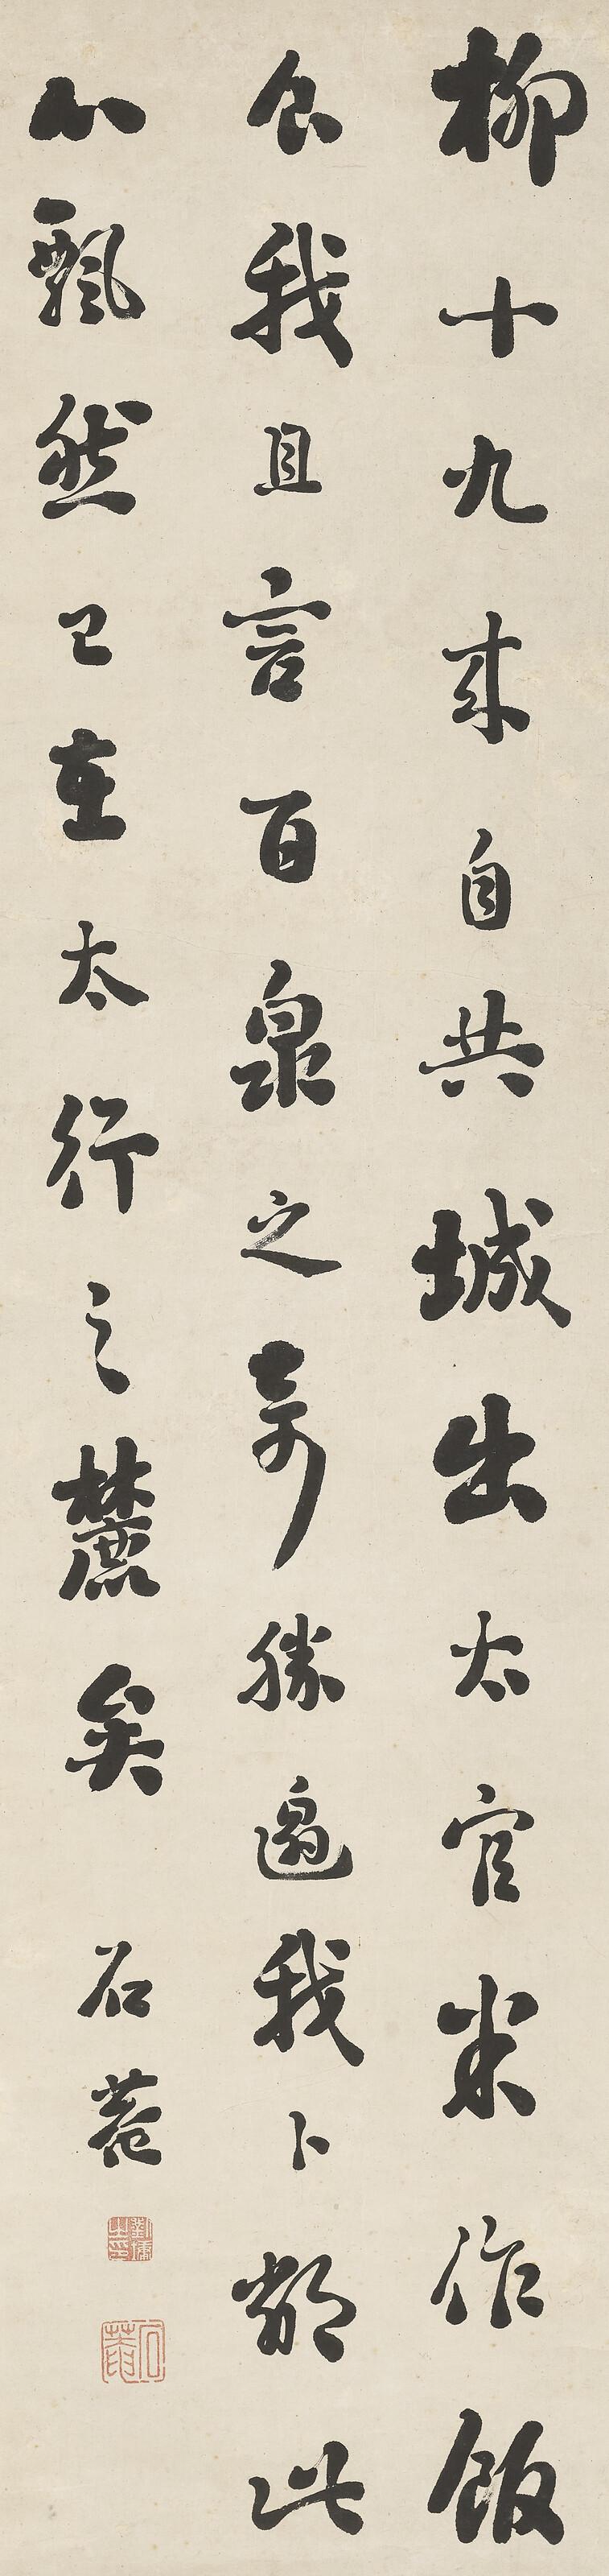 柳十九來自共城出太官米作飯
食我且言百泉之奇勝邀我卜鄰此
心飄然已在太行之麓矣
石菴